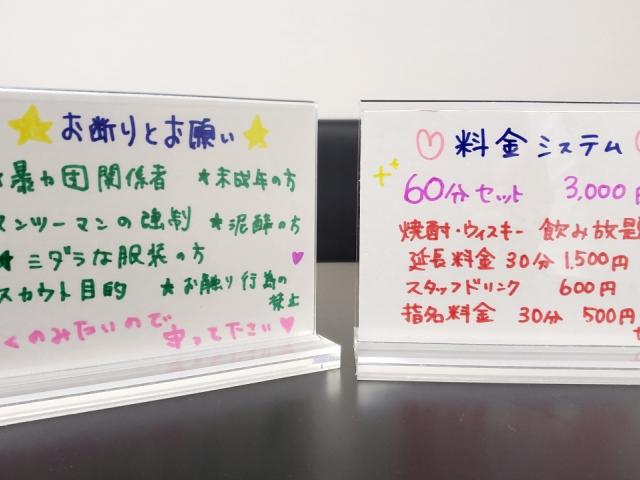 お断りとお願い
暴力団関係者 ★未成年の方
マンツーマンの強制 ★泥酔の方
★ミダラな服装の方
スカウト目的 ★お触り行為の禁止
くのみたいので 守って下さい♥
料金システム
60分セット 3,000円
焼酎・ウィスキー 飲み放題
延長料金 30分 1,500円
スタッフドリンク 600円
指名料金 30分 500円